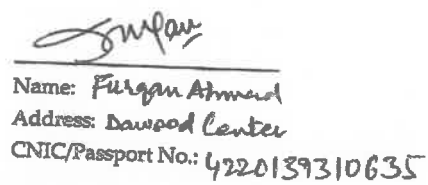 Name: Furqan Ahmed
Address: Dawood Center
CNIC/Passport No.: 4220139310635